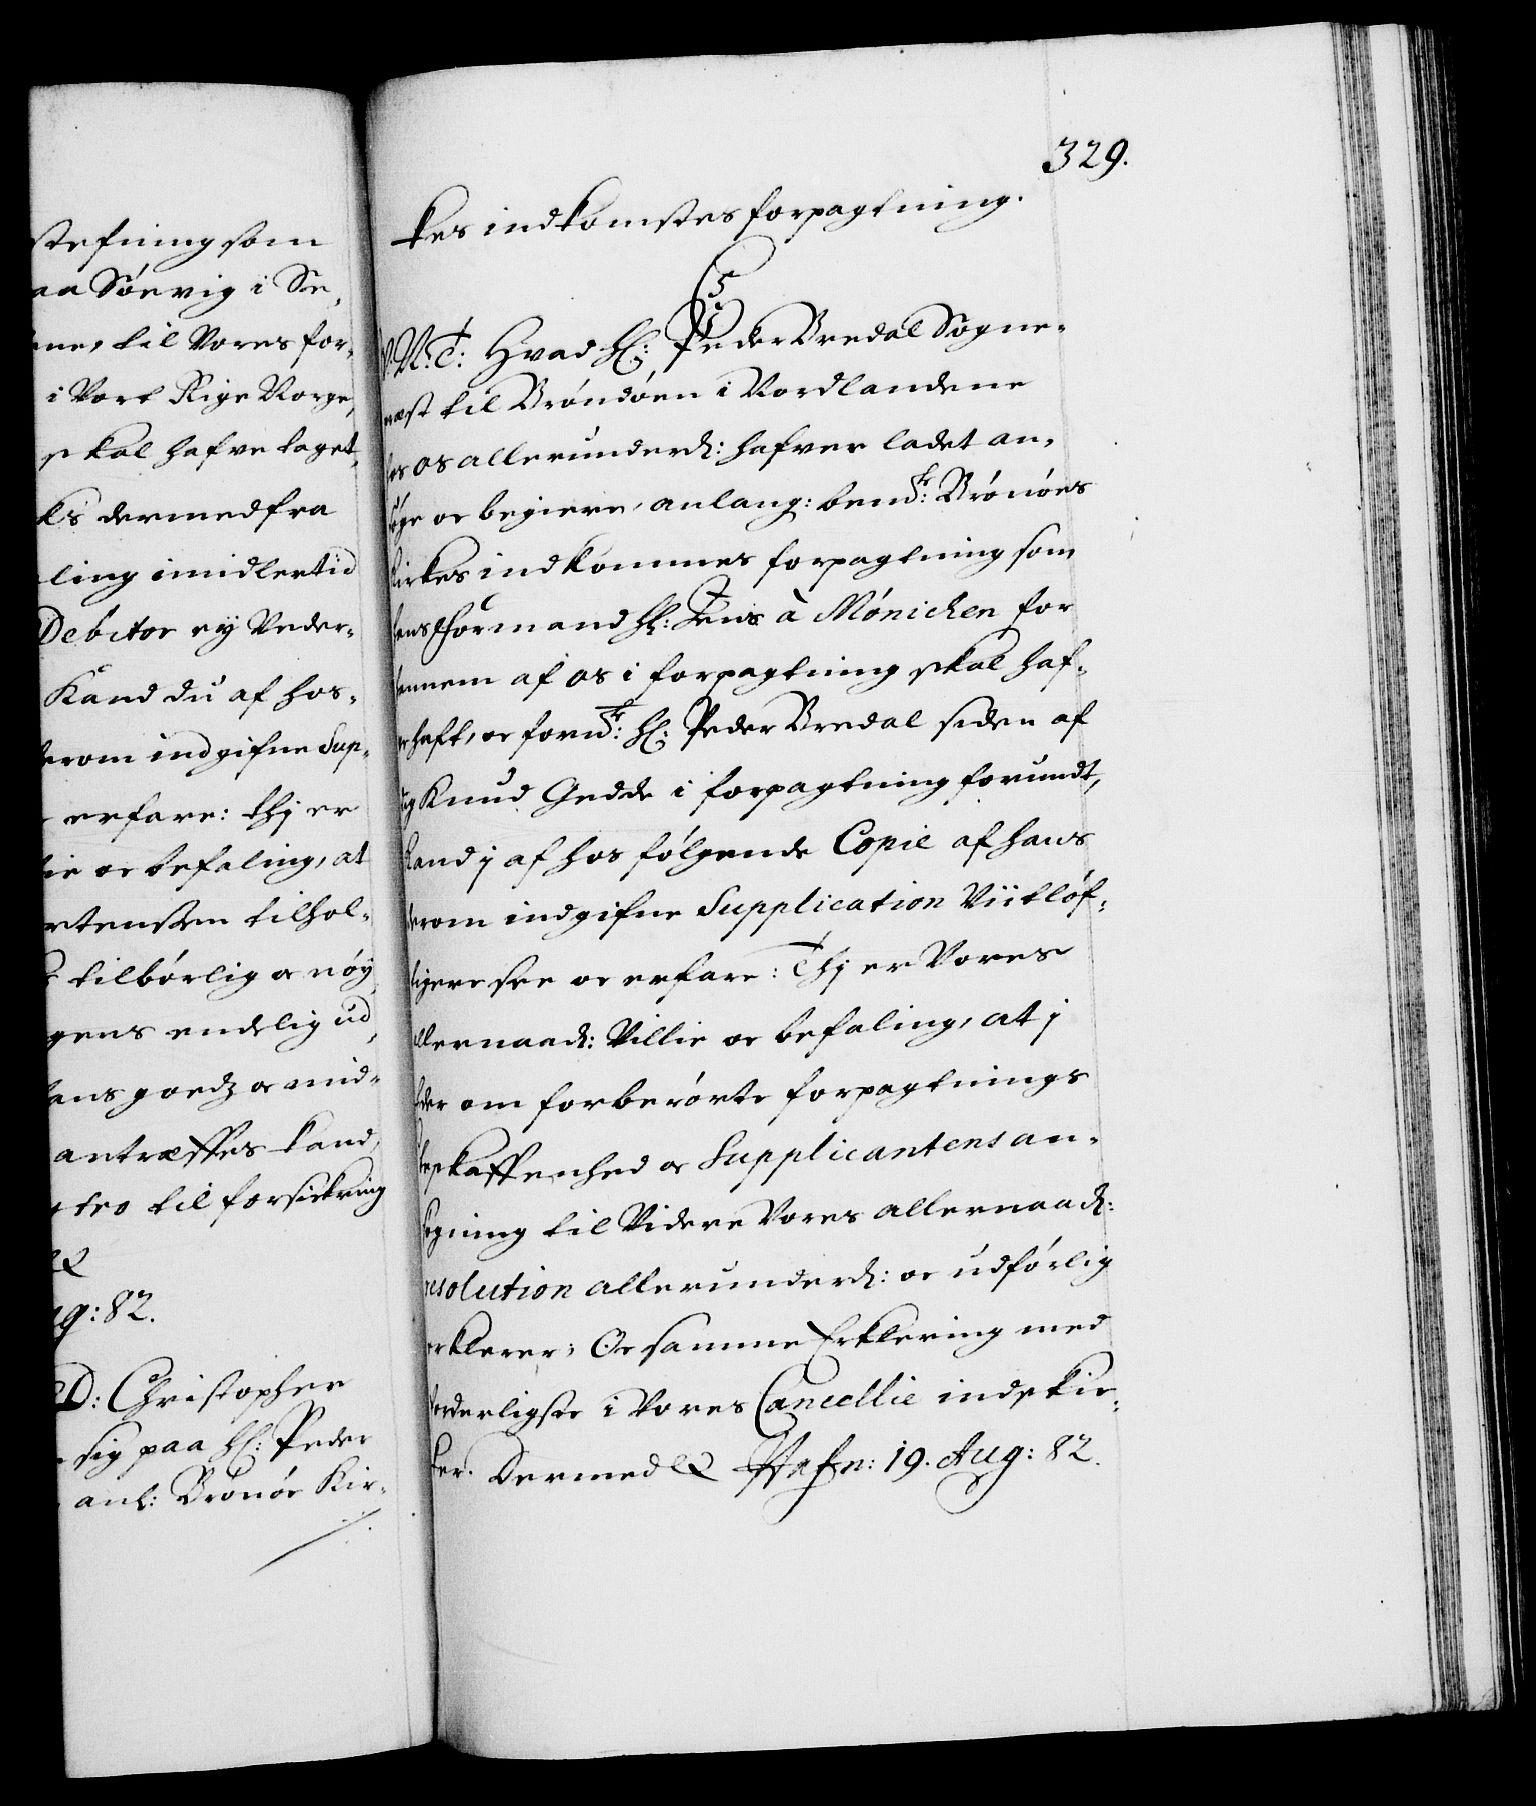 stefning som
aa Sörvig i Se-
ne, til Vores for-
i Vort Rige Norge,
skal hafve taget,
ks dermed fra
ling imidlertid
Debitor ey Veder-
Kand du af hos-
erom indgifne Sup-
erfare: thj er
ie oc befaling, at
rtensen tilhol-
tilbörlig oc nöy
gens endelig ud,
ans goedz oc mid-
antræffes kand,
tro til forsickring
ug: 82.
D: Christopher
sig paa Hr: Peder
anl: Brönöe Kir-
329.
kes indkomstes forpagtning.
C 5
V. N. T: Hvad Hr: Peder Bredal Sogne-
præst til Bröndöen i Nordlandene
hos os allerunderd: hafver ladet an-
söge oc begiere, anlang: bemte: Brönöes
Kirkes indkommes forpagtning som
hans Formand Hr: Jens à Mönichen for
hannem af os i forpagtning skal haf-
ve haft, oc fornte: Hr: Peder Bredal siden af
dig Knud Gedde i forpagtning forundt,
Kand j af hos fölgende Copie af hans
derom indgifne Supplication Viitlöf-
tigere see oc erfare: Thj er Vores
allernaad: Villie oc befaling, at j
Eder om forberörte forpagtnings
beskaffenhed oc Supplicantens an-
sögning til Videre Vores allernaad:
resolution allerunderd: oc udförlig
erklerer; Oc samme Erklering med
forderligste i Vores Cancellie indskic-
ker. Dermed etc Hafn: 19. Aug: 82.